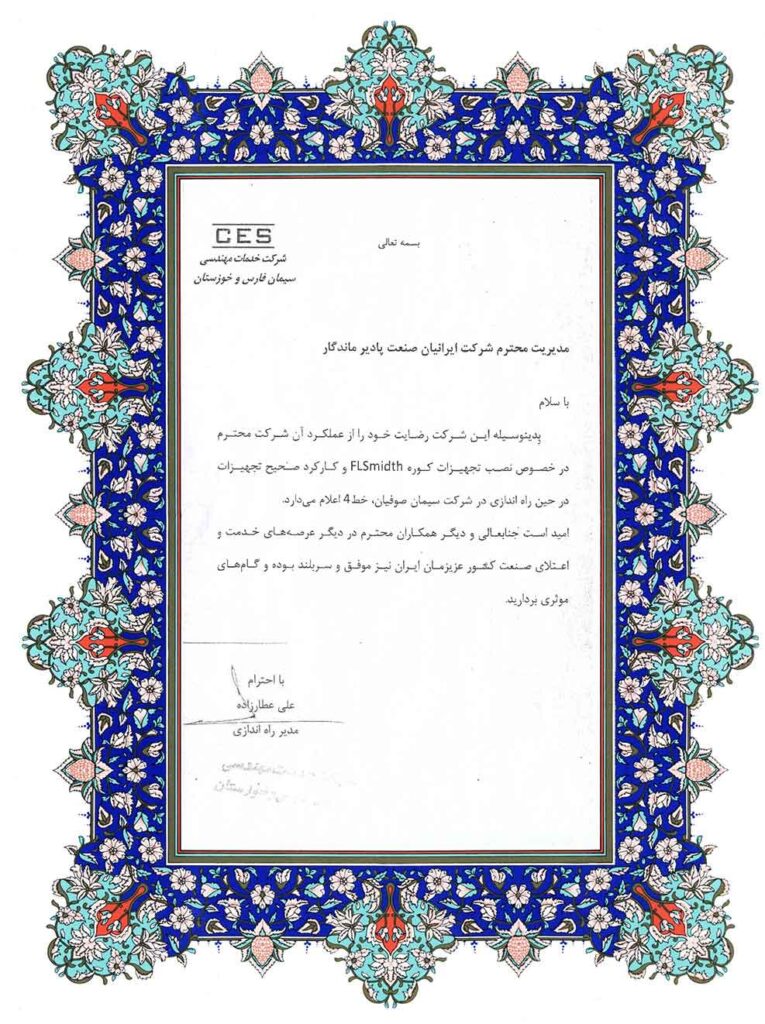 بسمه تعالی
CES
شرکت خدمات مهندسی
سیمان فارس و خوزستان
مدیریت محترم شرکت ایرانیان صنعت پادیر ماندگار
با سلام
بدینوسیله این شرکت رضایت خود را از عملکرد آن شرکت محترم
در خصوص نصب تجهیزات کوره FLSmidth و کارکرد صحیح تجهیزات
در حین راه اندازی در شرکت سیمان صوفیان، خط4 اعلام می‌دارد.
امید است جنابعالی و دیگر همکاران محترم در دیگر عرصه‌های خدمت و
اعتلای صنعت کشور عزیزمان ایران نیز موفق و سربلند بوده و گام‌های
موثری بردارید.
با احترام
علی عطارزاده
مدیر راه اندازی